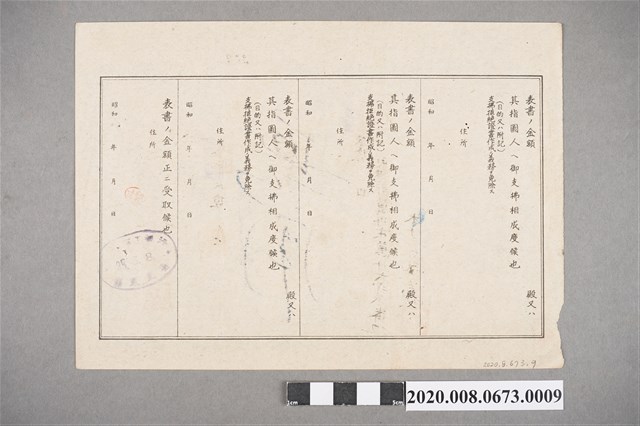 表書ノ金額
殿又ハ
其指圖人ヘ御支拂相成度候也
(目的又ハ附記)
支拂拒絕證書作成ノ義務ヲ免除ス
住所
昭和 年 月 日
表書ノ金額
殿又ハ
其指圖人ヘ御支拂相成度候也
(目的又ハ附記)
支拂拒絕證書作成ノ義務ヲ免除ス
住所
昭和 年 月 日
表書ノ金額
殿又ハ
其指圖人ヘ御支拂相成度候也
(目的又ハ附記)
支拂拒絕證書作成ノ義務ヲ免除ス
住所
昭和 年 月 日
表書ノ金額正ニ受取候也
住所
昭和 年 月 日
2020.8.673.9
1cm
5cm
2020.008.0673.0009